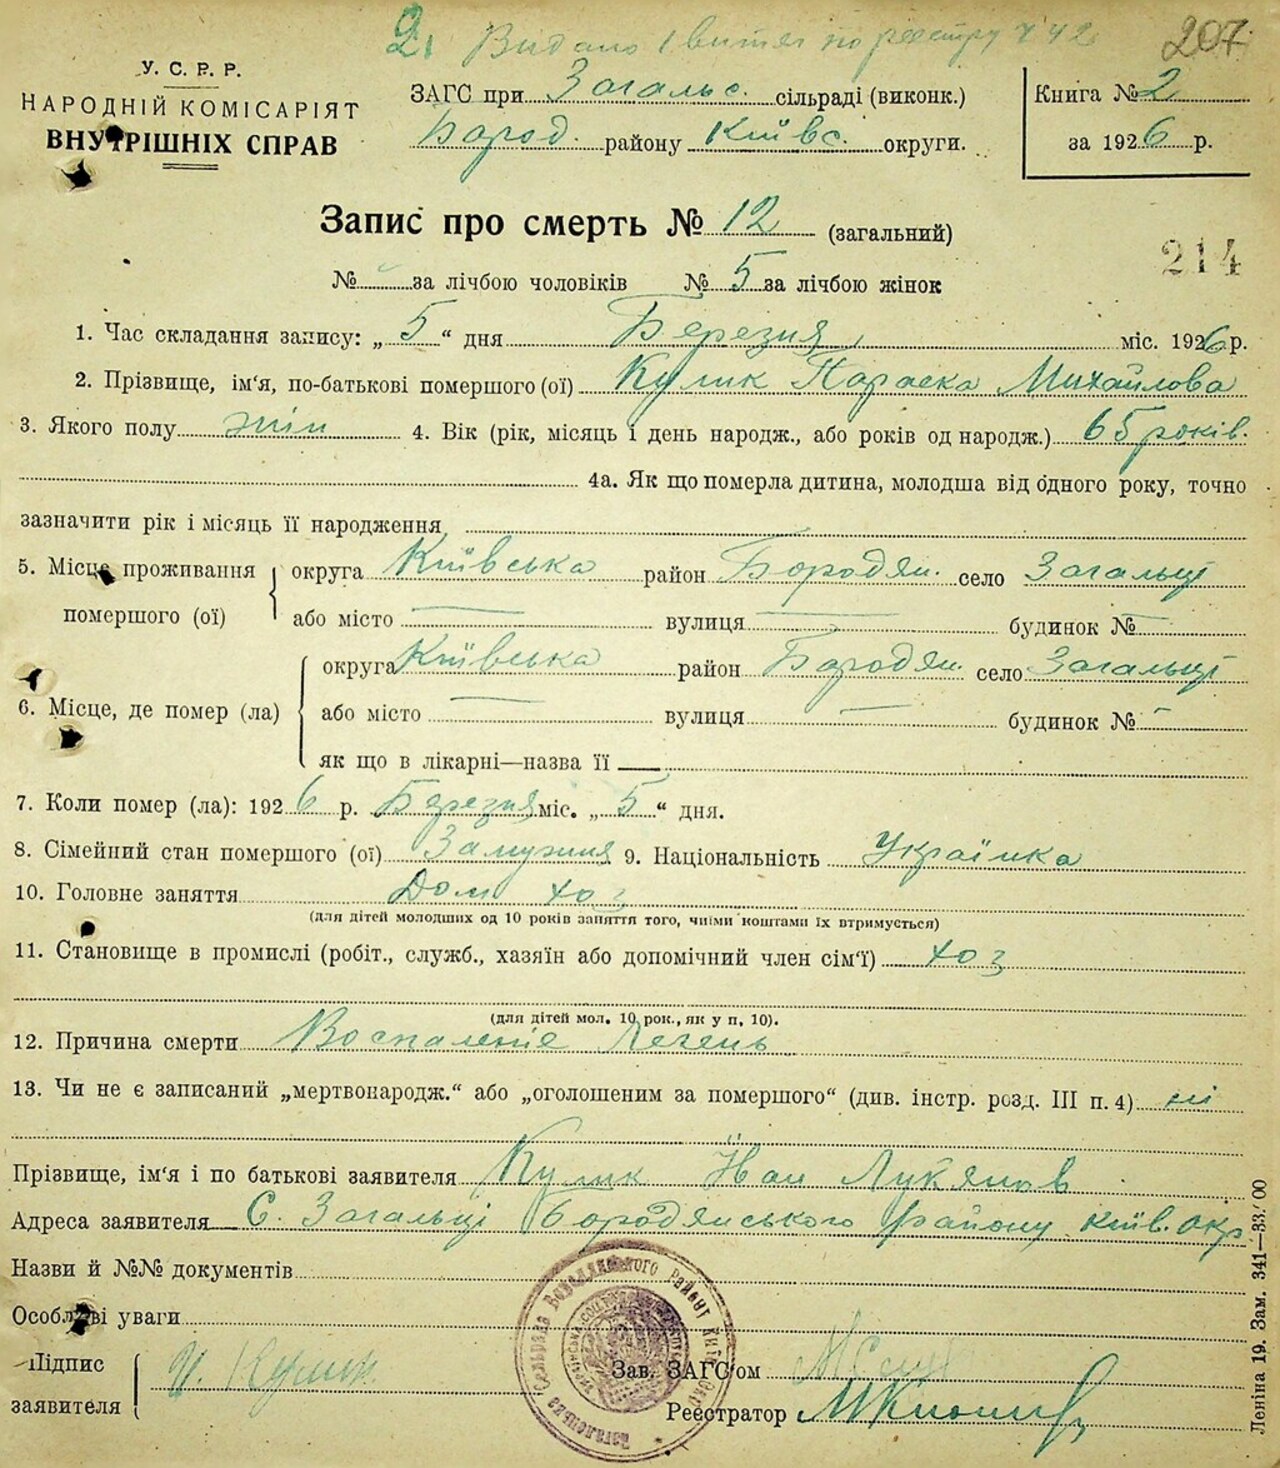 2, Видано 1 витяг по реєстру № 42 207
У. С. Р. Р.
НАРОДНІЙ КОМІСАРІЯТ
ВНУТРІШНІХ СПРАВ
ЗАГС при Загальс. сільраді (виконк.)
Бород. району Київс. округи.
Книга № 2
за 1926 р.
Запис про смерть № 12 (загальний)
214
№ за лічбою чоловіків № 5 за лічбою жінок
1. Час складання запису: „5“ дня Березня міс. 1926 р.
2. Прізвище, ім'я, по-батькові помершого (ої) Кулик Параска Михайлова
3. Якого полу жін 4. Вік (рік, місяць і день народж., або років од народж.) 65 років.
4а. Як що померла дитина, молодша від одного року, точно
зазначити рік і місяць її народження
5. Місце проживання помершого (ої) округа Київська район Бородян. село Загальці
або місто — вулиця — будинок № —
6. Місце, де помер (ла) округа Київська район Бородян. село Загальці
або місто — вулиця — будинок № —
як що в лікарні—назва її
7. Коли помер (ла): 1926 р. Березня міс. „5“ дня.
8. Сімейний стан помершого (ої) Замужня 9. Національність Українка
10. Головне заняття Дом хоз
(для дітей молодших од 10 років заняття того, чиїми коштами їх втримується)
11. Становище в промислі (робіт., служб., хазяїн або допомічний член сім'ї) хоз
(для дітей мол. 10 рок., як у п. 10).
12. Причина смерти Воспаленіє Легень
13. Чи не є записаний „мертвонародж.“ або „оголошеним за помершого“ (див. інстр. розд. III п. 4) ні
Прізвище, ім'я і по батькові заявителя Кулик Йван Лук'янов
Адреса заявителя С. Загальці Бородянського району Київ. окр
Назви й №№ документів
Особливі уваги
Підпис заявителя И. Кулик
Зав. ЗАГС'ом
Реєстратор
Ленінa 19. Зам. 341—33.000